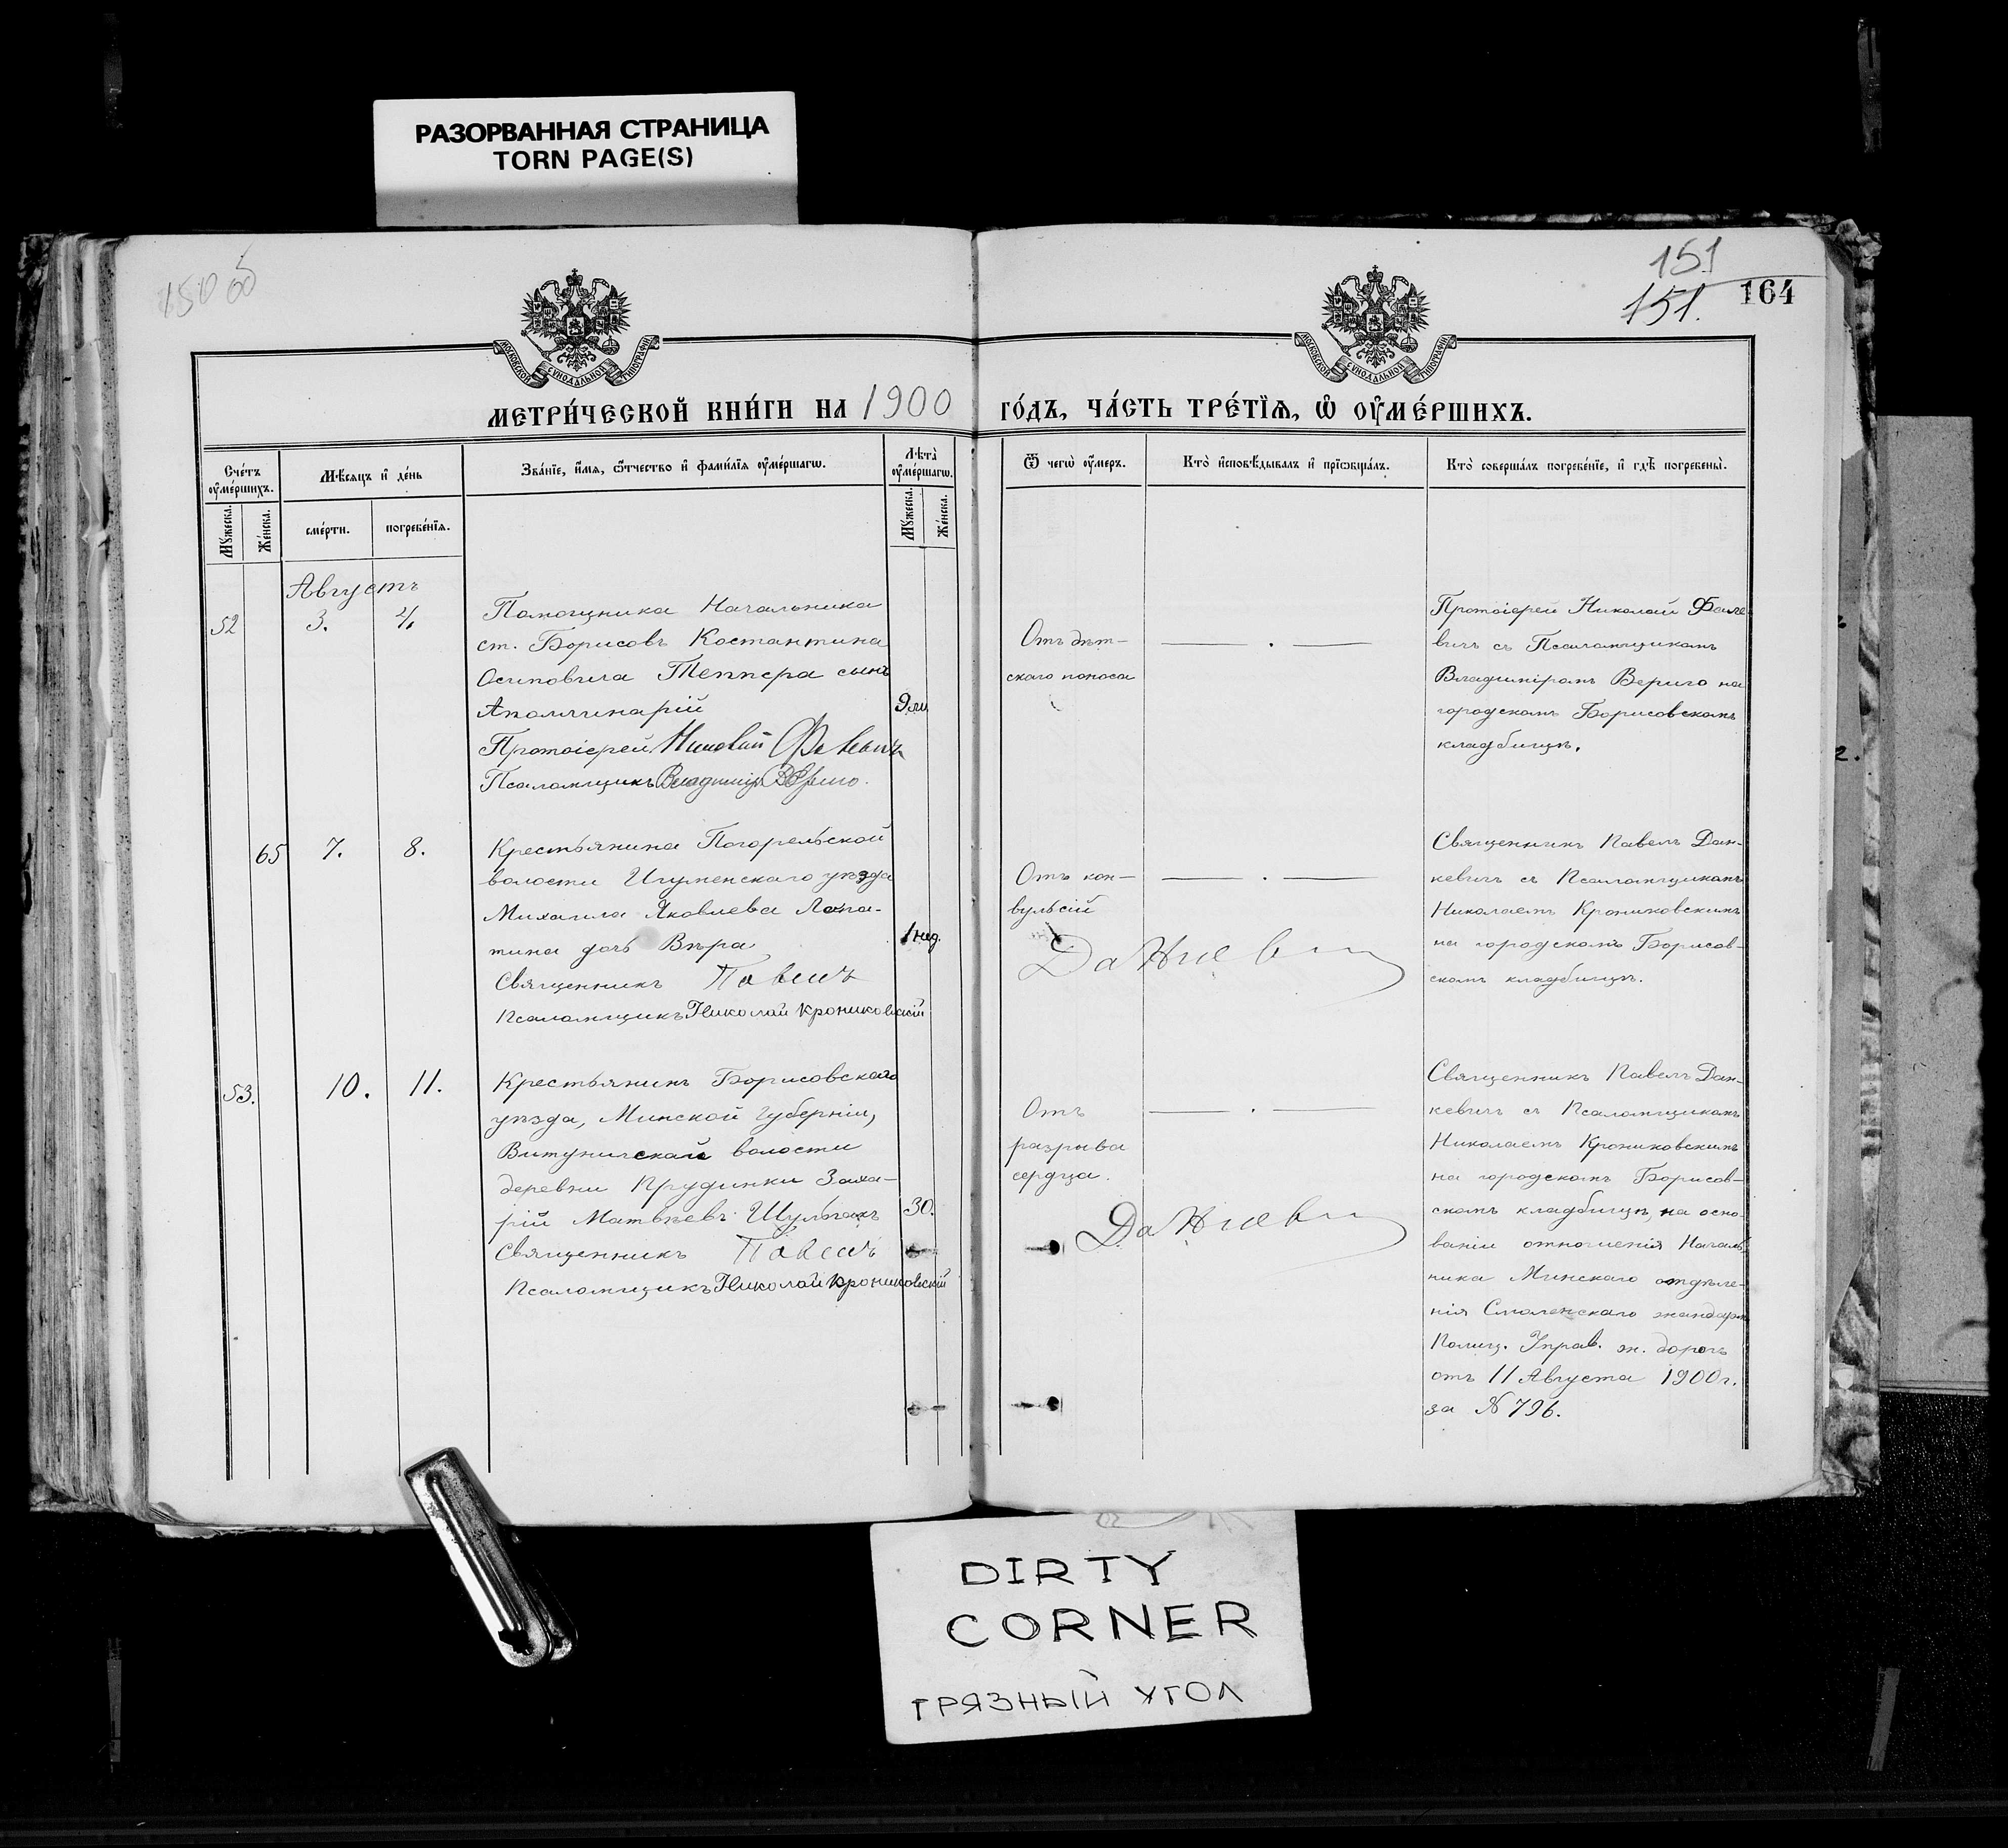 РАЗОРВАННАЯ СТРАНИЦА
TORN PAGE(S)
151
151.
164
МОСКОВСКОЙ СѴНОДАЛЬНОЙ ТИПОГРАФІИ
МОСКОВСКОЙ СѴНОДАЛЬНОЙ ТИПОГРАФІИ
МЕТРИ́ЧЕСКОЙ КНИ́ГИ НА 1900 ГО́ДЪ, ЧА́СТЬ ТРЕ́ТЇѦ, Ѡ҆ ОУ҆МЕ́РШИХЪ.
Сче́тъ оу҆ме́ршихъ.
Мѣ́сяцъ и҆ де́нь
Зва́нїе, и҆́мѧ, ѻ҆́тчество и҆ фами́лїѧ оу҆ме́ршагѡ.
Лѣ́та оу҆ме́ршагѡ.
Ѿ чегѡ̀ оу҆́меръ.
Кто̀ и҆сповѣ́дывалъ и҆ прїѡбща́лъ.
Кто̀ соверша́лъ погребе́нїе, и҆ гдѣ̀ погребены̀.
Мꙋ́жеска.
Же́нска.
сме́рти.
погребе́нїѧ.
Мꙋ́жеска.
Же́нска.
Августъ
52
3.
4.
Помощника Начальника
ст. Борисовъ Костантина
Осиповича Теппера сынъ
Аполлинарій
9 м
Протоіерей Николай
Псаломщикъ Владиміръ Вериго.
Отъ дѣт-
скаго поноса
Протоіерей Николай
вичъ съ Псаломщикомъ
Владиміромъ Вериго на
городскомъ Борисовскомъ
кладбищѣ.
65
7.
8.
Крестьянина Погорельской
волости Игуменскаго уѣзда
Михаила Яковлева Лопа-
тина дочь Вѣра
1 нед.
Священникъ Павелъ
Псаломщикъ Николай Крониковскій
Отъ кон-
вульсій
Данкевичъ
Священникъ Павелъ Дан-
кевичъ съ Псаломщикомъ
Николаемъ Крониковскимъ
на городскомъ Борисов-
скомъ кладбищѣ.
53.
10.
11.
Крестьянинъ Борисовскаго
уѣзда, Минской Губерніи,
Витуничской волости
деревни Прудинки Заха-
рій Матвѣевъ Шульгахъ
30.
Священникъ Павелъ
Псаломщикъ Николай Крониковскій
Отъ
разрыва
сердца.
Данкевичъ
Священникъ Павелъ Дан-
кевичъ съ Псаломщикомъ
Николаемъ Крониковскимъ
на городскомъ Борисов-
скомъ кладбищѣ, на осно-
ваніи отношенія Началь-
ника Минскаго отдѣле-
нія Смоленскаго жандарм.
Полиц. Управ. ж. дорогъ
отъ 11 Августа 1900 г.
за № 796.
DIRTY
CORNER
ГРЯЗНЫЙ УГОЛ